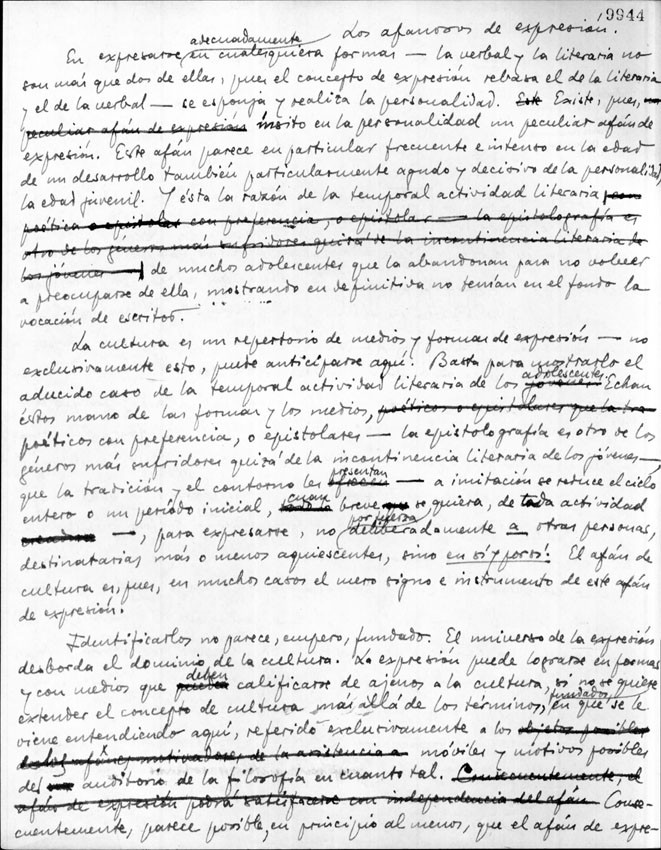 9944
Los afanosos de expresión.
adecuadamente
En expresarse en cualesquiera formas — la verbal y la literaria no
son más que dos de ellas, pues el concepto de expresión rebasa el de la literaria
y el de la verbal — se esponja y realiza la personalidad. Este Existe, pues,
peculiar afán de expresión ínsito en la personalidad un peculiar afán de
expresión. Este afán parece en particular frecuente e intenso en la edad
de un desarrollo también particularmente agudo y decisivo de la personalidad,
la edad juvenil. Y ésta la razón de la temporal actividad literaria (con
poética o epistolar con preferencia, o epistolar — la epistolografía es
otro de los géneros más sufridores quizá de la incontinencia literaria de
los jóvenes —) de muchos adolescentes que la abandonan para no volver
a preocuparse de ella, mostrando en definitiva no tenían en el fondo la
vocación de escritor.
La cultura es un repertorio de medios y formas de expresión — no
exclusivamente esto, puede anticiparse aquí. Basta para mostrarlo el
adolescentes.
aducido caso de la temporal actividad literaria de los jóvenes. Echan
éstos mano de las formas y los medios, poéticos o epistolares que la tra
poéticos con preferencia, o epistolares — la epistolografía es otro de los
géneros más sufridores quizá de la incontinencia literaria de los jóvenes —,
presentan
que la tradición y el contorno les ofrecen — a imitación se reduce el ciclo
cuan
entero o un período inicial, breve que se quiera, de toda actividad
por fuerza
creadora —, para expresarse, no deliberadamente a otras personas,
destinatarias más o menos aquiescentes, sino en sí y por sí. El afán de
cultura es, pues, en muchos casos el mero signo e instrumento de este afán
de expresión.
Identificarlos no parece, empero, fundado. El universo de la expresión
desborda el dominio de la cultura. La expresión puede lograrse en formas
deben
y con medios que pueden calificarse de ajenos a la cultura, si no se quiere
fundados
extender el concepto de cultura más allá de los términos, en que se le
viene entendiendo aquí, referido exclusivamente a los objetos posibles
de los afanes motivadores de la asistencia a móviles y motivos posibles
del auditorio de la filosofía en cuanto tal. Consecuentemente, el
afán de expresión podrá satisfacerse con independencia del afán Conse-
cuentemente, parece posible, en principio al menos, que el afán de expre-